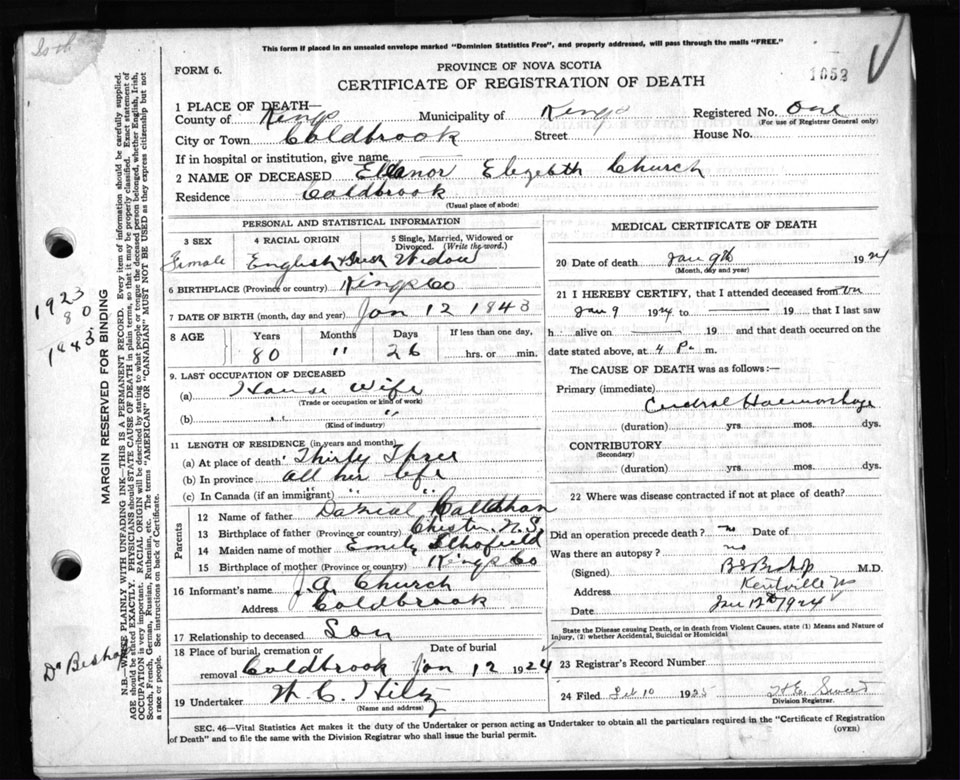 This form if placed in an unsealed envelope marked "Dominion Statistics Free", and properly addressed, will pass through the mails "FREE."
FORM 6.
PROVINCE OF NOVA SCOTIA
1053
CERTIFICATE OF REGISTRATION OF DEATH
1 PLACE OF DEATH—
County of Kings Municipality of Kings Registered No. One
(For use of Registrar General only)
City or Town Coldbrook Street House No.
If in hospital or institution, give name
2 NAME OF DECEASED Eleanor Elezebeth Church
Residence Coldbrook
(Usual place of abode)
PERSONAL AND STATISTICAL INFORMATION
3 SEX 4 RACIAL ORIGIN 5 Single, Married, Widowed or Divorced. (Write the word.)
Female English & Irish Widow
6 BIRTHPLACE (Province or country) Kings Co
7 DATE OF BIRTH (month, day and year) Jan 12 1843
8 AGE Years Months Days If less than one day,
80 11 26 hrs. or min.
9. LAST OCCUPATION OF DECEASED
(a) House Wife
(Trade or occupation or kind of work)
(b) " "
(Kind of industry)
11 LENGTH OF RESIDENCE (in years and months)
(a) At place of death Thirty Three
(b) In province all her life
(c) In Canada (if an immigrant) " "
Parents
12 Name of father Danial Callahan
13 Birthplace of father (Province or country) Chester N.S.
14 Maiden name of mother Emily Schofield
15 Birthplace of mother (Province or country) Kings Co
16 Informant's name J.A. Church
Address Coldbrook
17 Relationship to deceased Son
18 Place of burial, cremation or removal Date of burial
Coldbrook Jan 12 1924
19 Undertaker W. C. Hiltz
(Name and address)
MEDICAL CERTIFICATE OF DEATH
20 Date of death Jan 9th 1924
(Month, day and year)
21 I HEREBY CERTIFY, that I attended deceased from
Jan 9 1924 to 19 that I last saw
h alive on 19 and that death occurred on the
date stated above, at 4 P. m.
The CAUSE OF DEATH was as follows:—
Primary (immediate)
Cerebral Haemorhage
(duration) yrs mos. dys.
CONTRIBUTORY
(Secondary)
(duration) yrs. mos. dys.
22 Where was disease contracted if not at place of death?
Did an operation precede death? no Date of
Was there an autopsy? no
(Signed) B E Bishop M.D.
Address Kentville NS
Date Jan 12th 1924
State the Disease causing Death, or in death from Violent Causes, state (1) Means and Nature of Injury, (2) whether Accidental, Suicidal or Homicidal
23 Registrar's Record Number
24 Filed Feb 10 1925
Division Registrar.
SEC. 46—Vital Statistics Act makes it the duty of the Undertaker or person acting as Undertaker to obtain all the particulars required in the "Certificate of Registration of Death" and to file the same with the Division Registrar who shall issue the burial permit.
(OVER)
1923
80
1843
Dr Bishop
MARGIN RESERVED FOR BINDING
N.B—WRITE PLAINLY WITH UNFADING INK—THIS IS A PERMANENT RECORD. Every item of information should be carefully supplied.
AGE should be stated EXACTLY. PHYSICIANS should STATE CAUSE OF DEATH in plain terms, so that it may be properly classified. Exact statement of
OCCUPATION is very important. RACIAL ORIGIN will be described by stating to what people or tongue the deceased person belonged, whether English, Irish,
Scotch, French, German, Russian, Ruthenian, etc. The terms "AMERICAN" or "CANADIAN" MUST NOT BE USED as they express citizenship but not
a race or people. See instructions on back of Certificate.